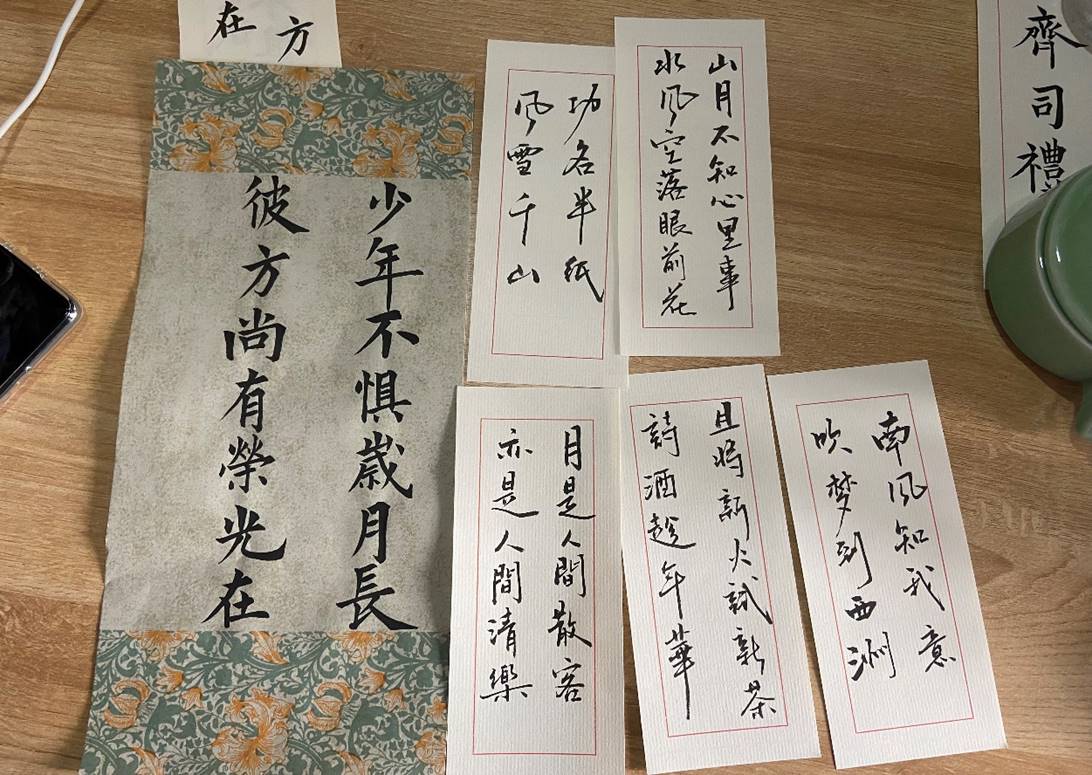 在
方
少年不惧歲月長
彼方尚有榮光在
功名半纸
风雪千山
山月不知心里事
水风空落眼前花
月是人間散客
亦是人間清樂
且将新火試新茶
詩酒趁年華
南风知我意
吹梦到西洲
齊司禮